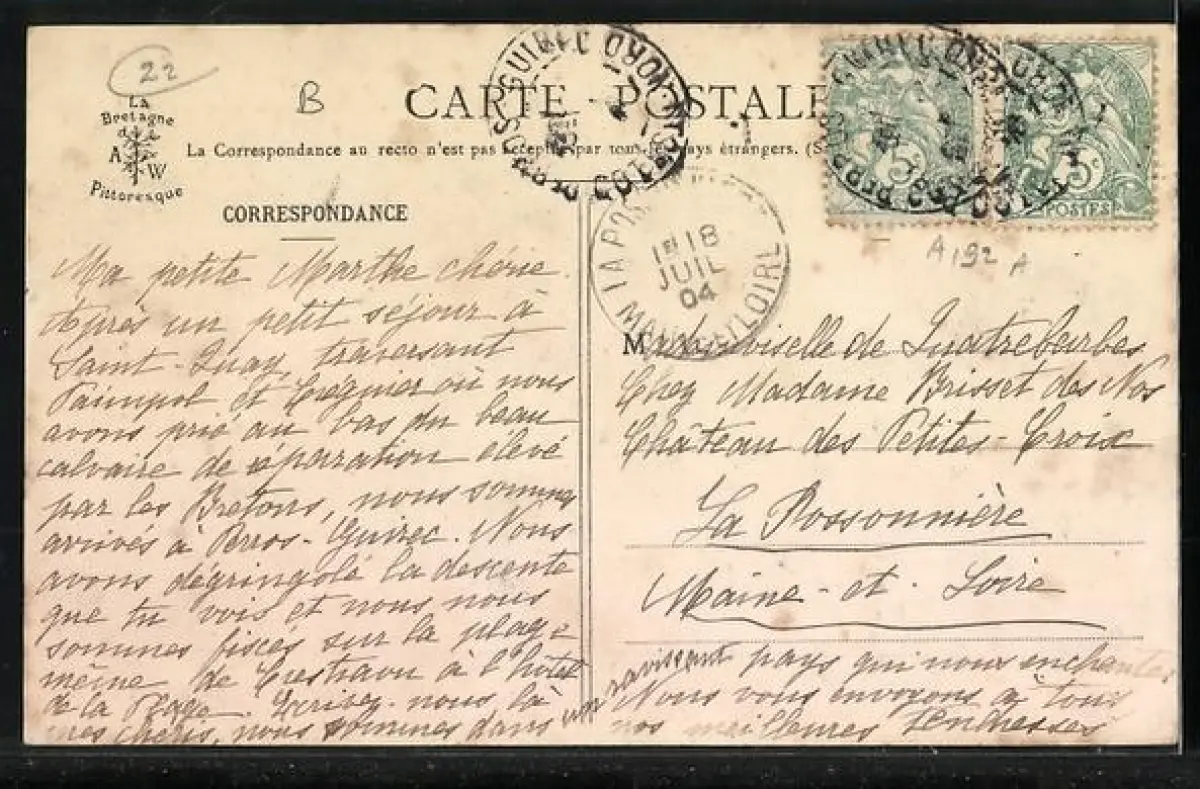 22
B
La
Bretagne
A W
Pittoresque
CARTE POSTALE
La Correspondance au recto n'est pas acceptée par tous les pays étrangers. (S
CORRESPONDANCE
Ma petite Marthe chérie.
Après un petit séjour à
Saint-Quay, traversant
Paimpol et Tréguier où nous
avons prié au bas du beau
calvaire de réparation élevé
par les Bretons, nous sommes
arrivés à Perros-Guirec. Nous
avons dégringolé la descente
que tu vois et nous nous
sommes fixés sur la plage
même de Trestraou à l'hôtel
de la Plage. Ecrivez-nous là
mes chéris, nous sommes dans un
ravissant pays qui nous enchante
Nous vous envoyons à tous
nos meilleures tendresses
PERROS-GUIREC
COTES DU NORD
LA POS
1E 18
JUIL
04
MAINE-ET-LOIRE
5c
5c
POSTES
A 192 A
Mademoiselle de Quatrebarbes
Chez Madame Brisset des Nos
Château des Petites-Croix
La Possonnière
Maine-et-Loire